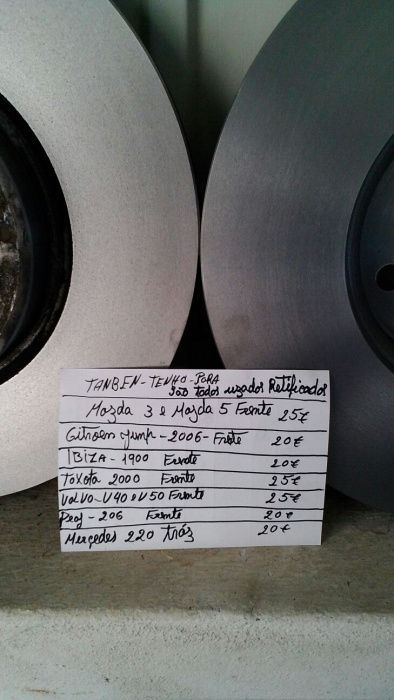 TANBEN-TENHO-PORA
São todos uzados Retificados
Mazda 3 e Mazda 5 Frente 25€
Citroen Jump-2006-Frete 20€
IBIZA-1900 Frente 20€
Toxota 2000 Frente 25€
Volvo-V40 e V50 Frente 25€
Peoj-206 Frente 20€
Mercedes 220 trás 20€